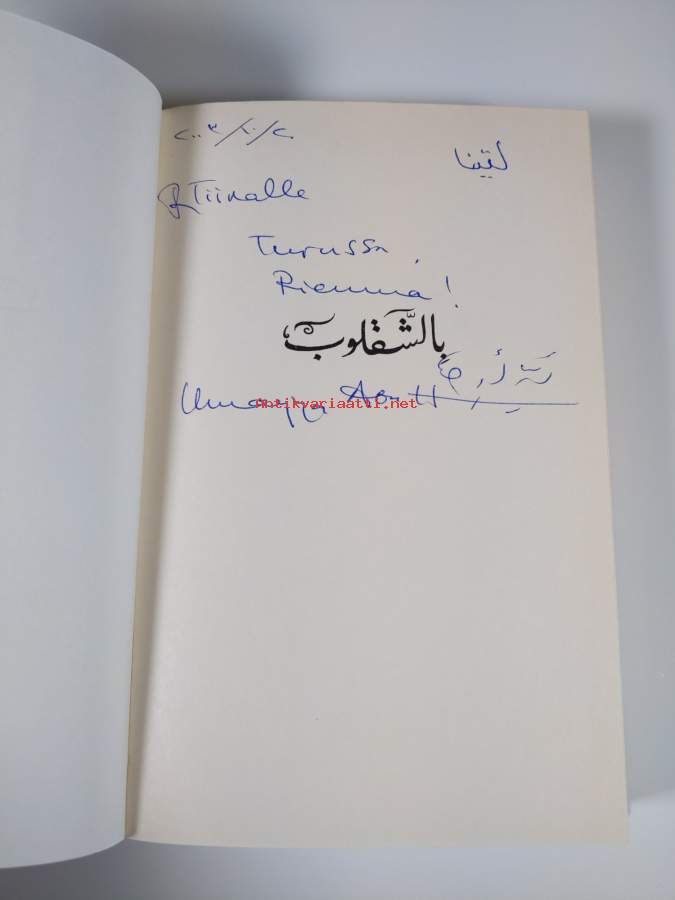 ٢٠٠٣/١٠/٢٠
لتينا
Tiinalle
Turussa,
Riemua!
بالشَّقلوب
Umayya Abu-H
antikvariaatti.net